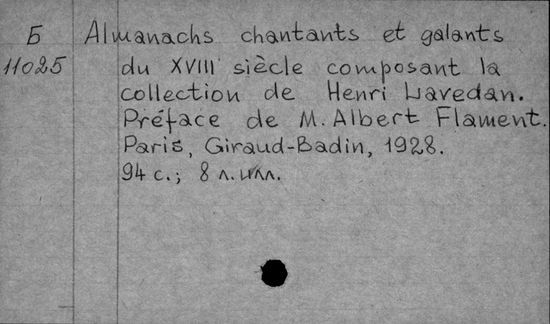 Б Almanachs chantants et galants
11025 du XVIII siècle composant la
collection de Henri Lavedan.
Préface de M. Albert Flament.
Paris, Giraud-Badin, 1928.
94 с.; 8 л. илл.